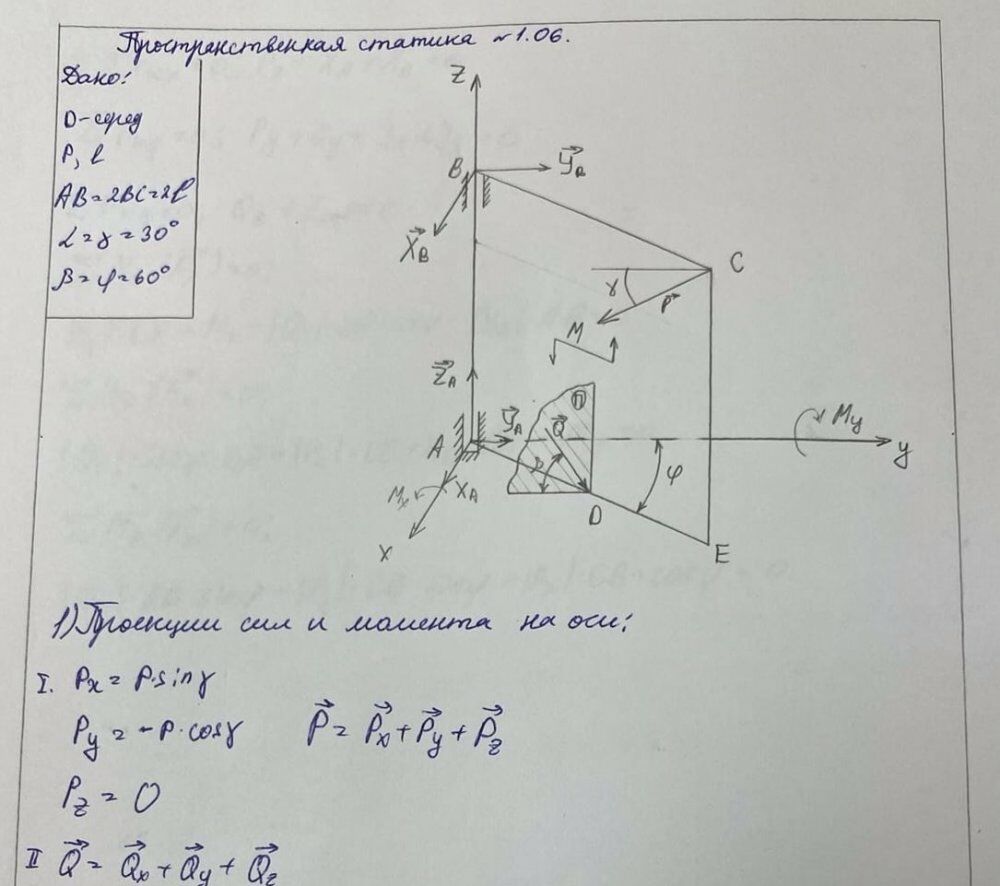 Пространственная статика №1.06.
Дано:
D-серед
P, ℓ
AB=2BC=2ℓ
α=γ=30°
β=φ=60°
Z
B
Y⃗B
X⃗B
C
γ
P⃗
M
Z⃗A
П
Y⃗A
Q⃗
My
A
β
φ
y
Mx
XA
D
X
E
1) Проекции сил и момента на оси:
I. Px = P·sinγ
Py = -P·cosγ P⃗ = P⃗x + P⃗y + P⃗z
Pz = 0
II Q⃗ = Q⃗x + Q⃗y + Q⃗z